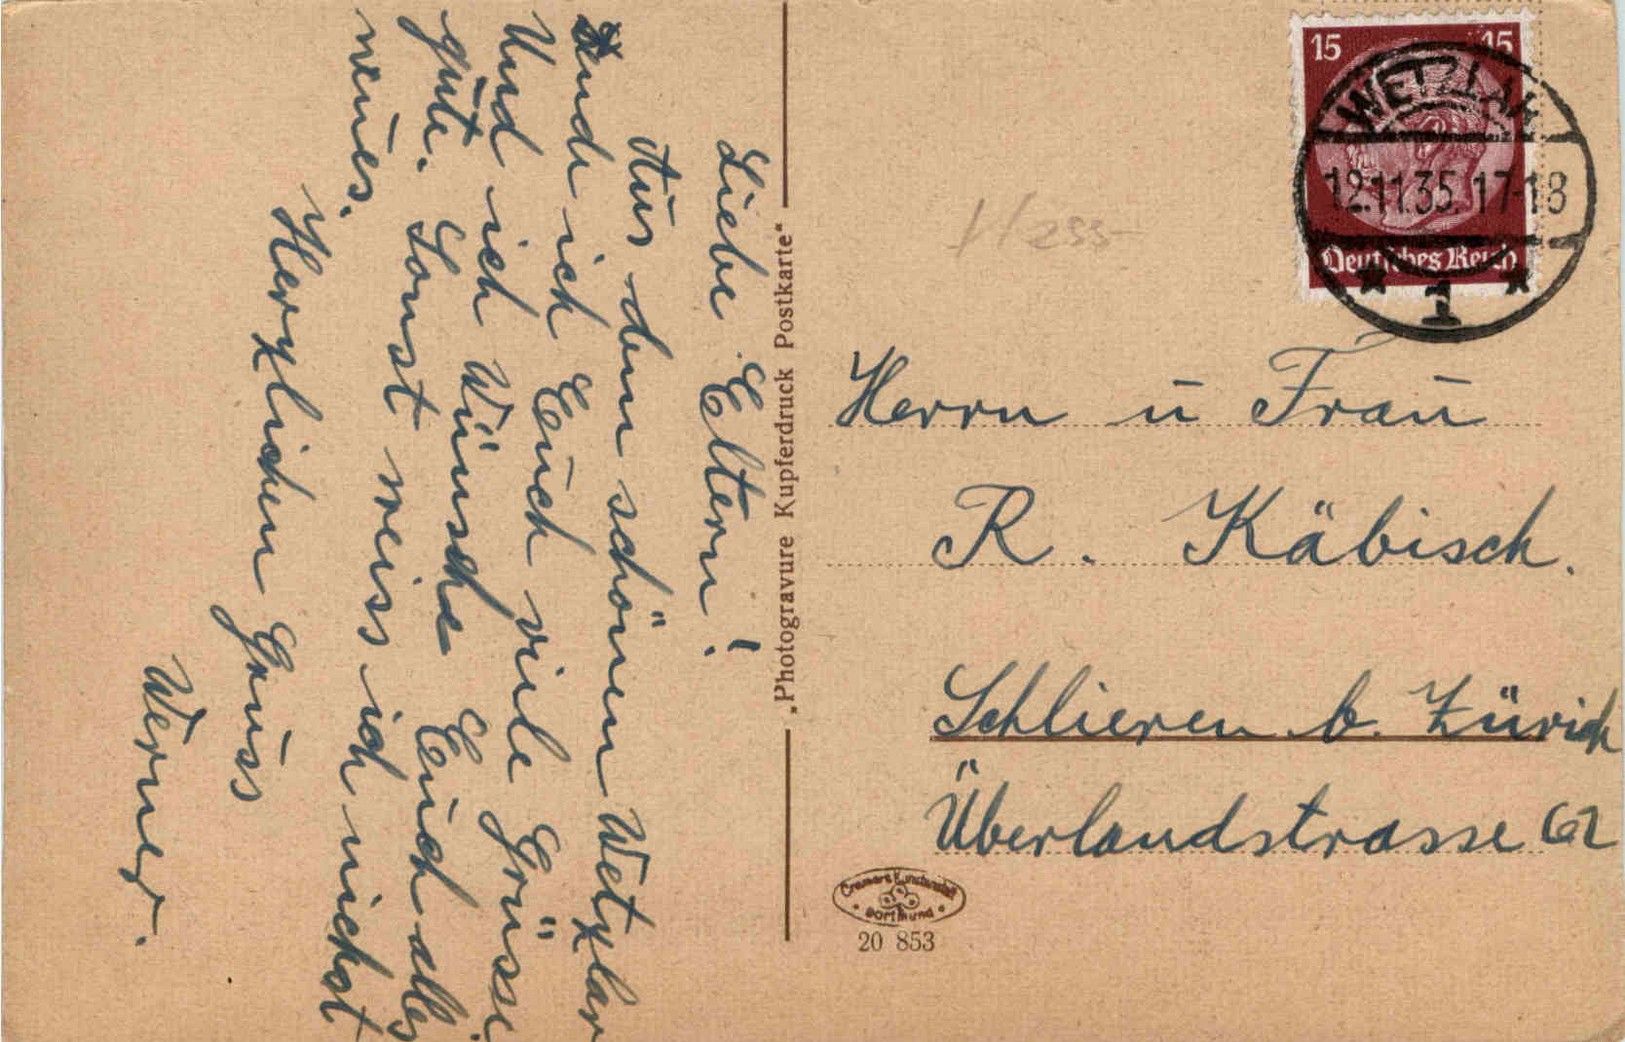 Liebe Eltern!
Aus dem schönen Wetzlar
sende ich Euch viele Grüsse
Und ich Wünsche Euch alles
gute. Sonst weiss ich nichst
neues.
Herzlichen Gruss
Werner.
„Photogravure Kupferdruck Postkarte“
15 15
Deutsches Reich
WETZLAR
12.11.35. 17-18
* 1 *
Hess
Herrn u Frau
R. Käbisch.
Schlieren b. Zürich
Überlandstrasse 62
Cramers Kunstanstalt
Dortmund
20 853